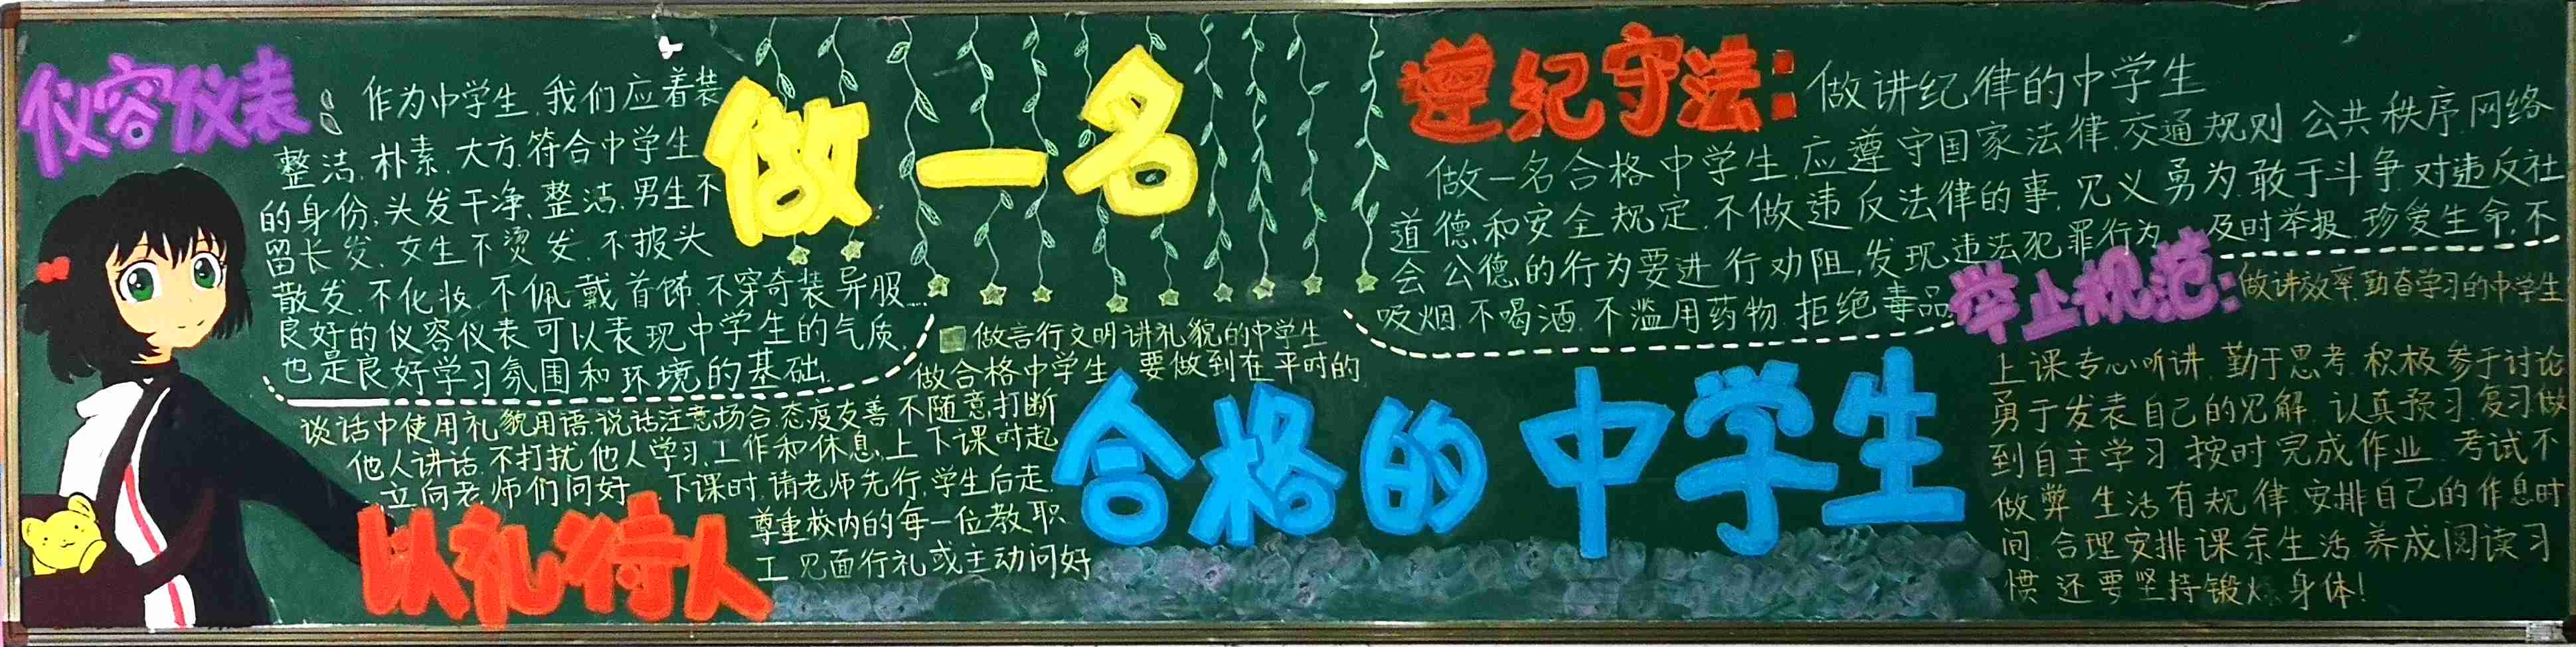 仪容仪表：
作为中学生,我们应着装
整洁,朴素,大方,符合中学生
的身份,头发干净、整洁,男生不
留长发,女生不烫发,不披头
散发,不化妆,不佩戴首饰,不穿奇装异服……
良好的仪容仪表可以表现中学生的气质,
也是良好学习氛围和环境的基础.
做一名
合格的中学生
做言行文明讲礼貌的中学生
做合格中学生,要做到在平时的
谈话中使用礼貌用语,说话注意场合,态度友善,不随意打断
他人讲话,不打扰他人学习,工作和休息,上下课时起
立向老师们问好,下课时,请老师先行,学生后走.
尊重校内的每一位教职
工,见面行礼或主动问好
以礼待人
遵纪守法：做讲纪律的中学生
做一名合格中学生,应遵守国家法律,交通规则,公共秩序,网络
道德,和安全规定,不做违反法律的事,见义勇为,敢于斗争,对违反社
会公德的行为要进行劝阻,发现违法犯罪行为,及时举报,珍爱生命,不
吸烟,不喝酒,不滥用药物,拒绝毒品
举止规范：做讲效率,勤奋学习的中学生
上课专心听讲,勤于思考,积极参于讨论
勇于发表自己的见解,认真预习,复习做
到自主学习,按时完成作业,考试不
做弊,生活有规律,安排自己的作息时
间,合理安排课余生活,养成阅读习
惯,还要坚持锻炼身体!